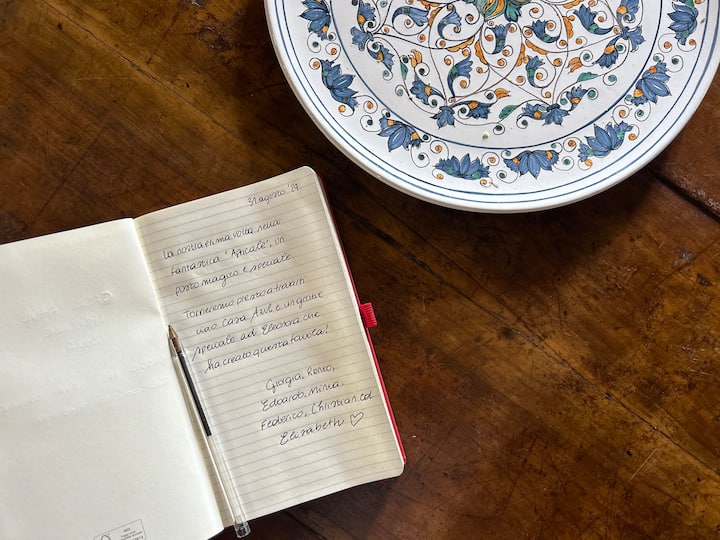 31 agosto '21
La nostra prima volta nella
fantastica "Apicale", un
posto magico e speciale.
Torneremo presto a trovarti
cara Casa Azul e un grazie
speciale ad Eleonora che
ha creato questa favola!
Giorgia, Renzo,
Edoardo, Mimma,
Federico, Christian ed
Elizabeth ♡